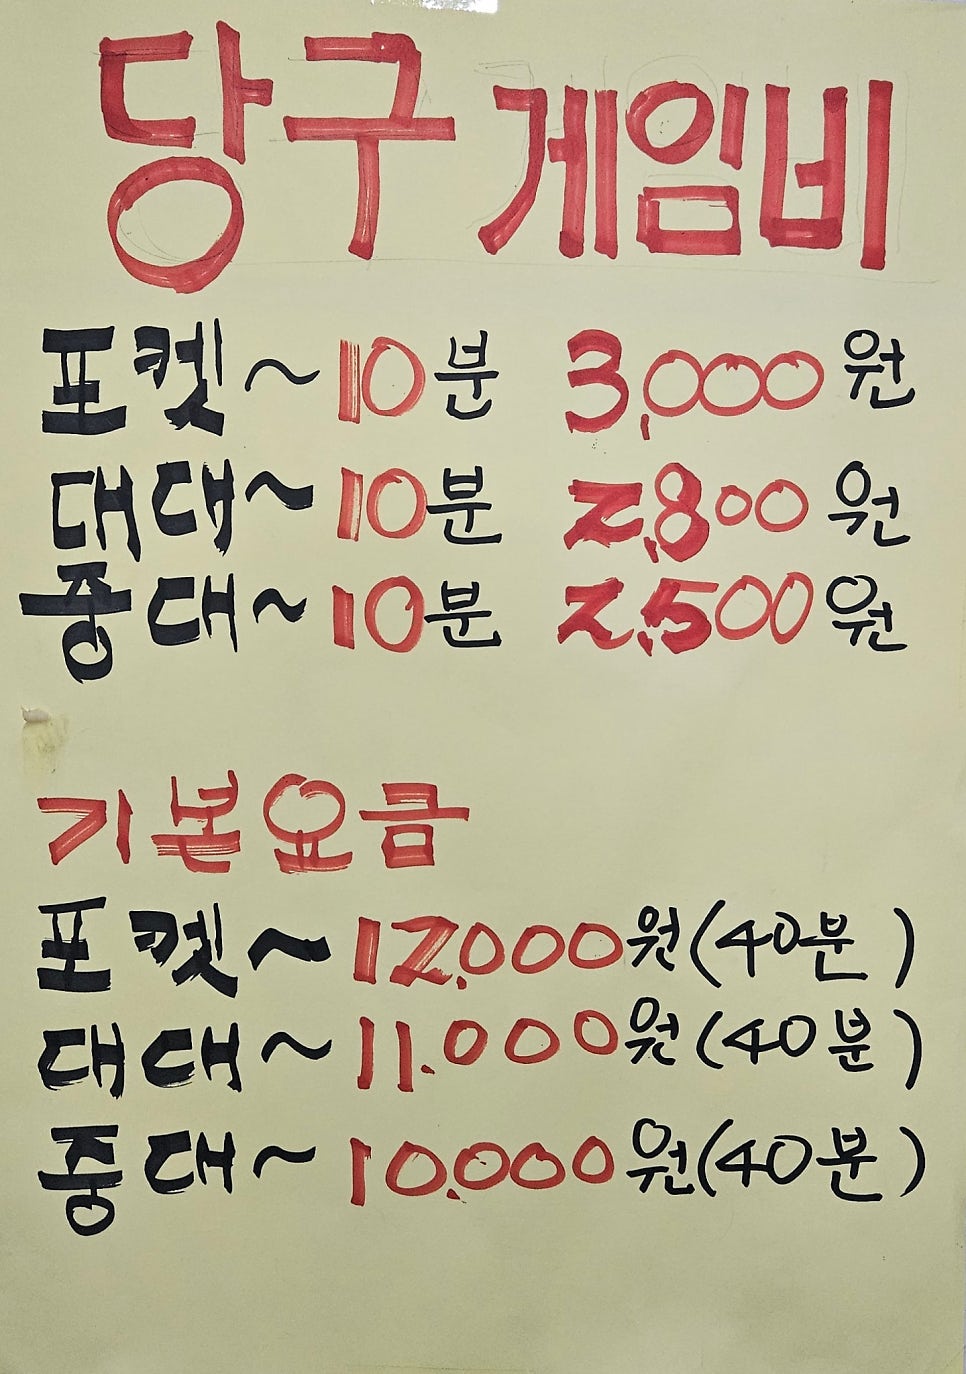 당구 게임비
포켓~10분 3,000원
대대~10분 2,800원
중대~10분 2,500원
기본요금
포켓~12,000원(40분)
대대~11.000원(40분)
중대~10.000원(40분)